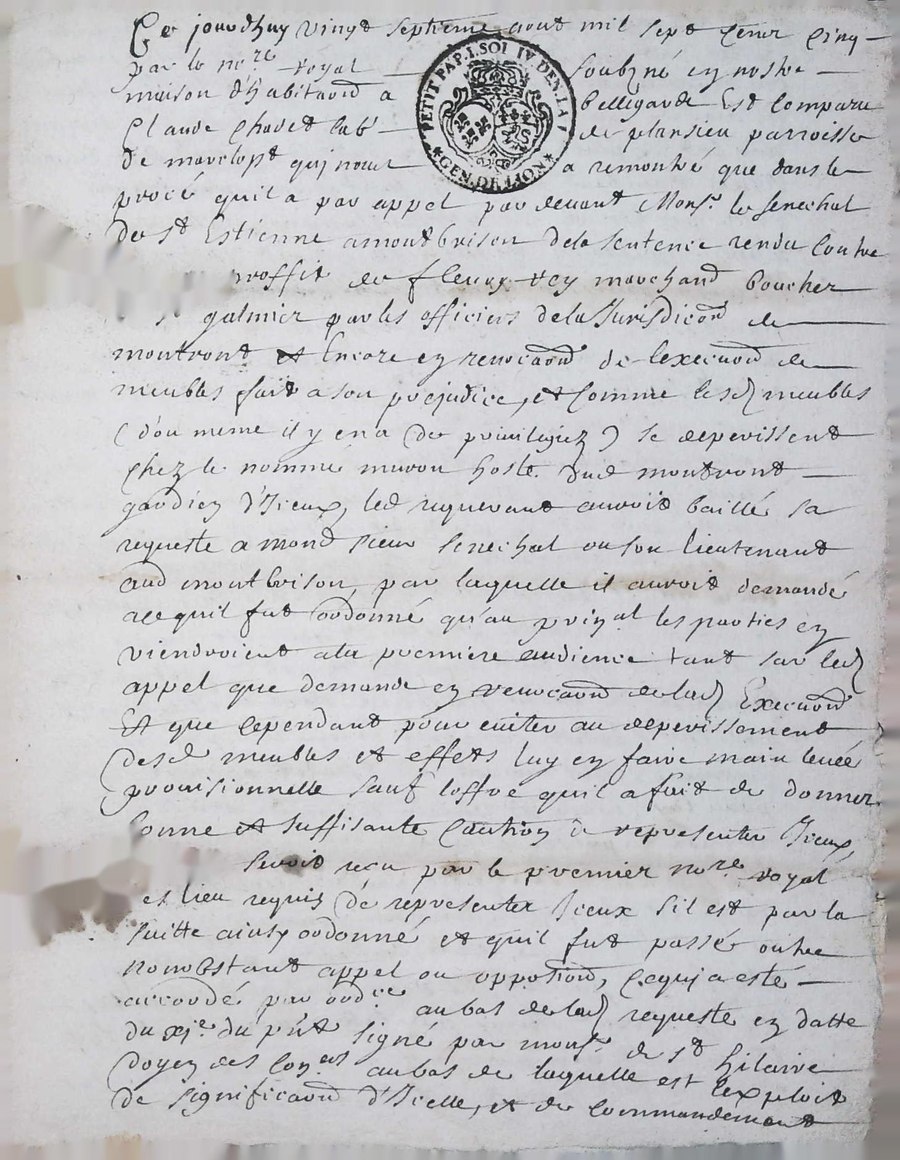 Ce jourdhuy vingt septieme aout mil sept cent cinq
par le nore royal soubzné en nostre
PETIT PAP. I. SOL IV. DEN. LA F
GEN. DE LION
maison d'habitaon a Bellegarde Est Comparu
Claude Chovet lab^r de plansieu parroisse
de marclopt qui nous a remontré que dans le
procé quil a par appel par devant Monsr. le senechal
de st Estienne a montbrison de la sentence rendu contre
proffit de fleury rey marchand boucher
galmier par les officiers de la Jurisdicon de
montront et Encore en revocaon de lexecuon de
meubles fait a son prejudice, et Comme lesd meubles
(dou meme il y en a de privilegiez) se deperissent
chez le nommé muron hoste dud montront
gardien d'Iceux, led requerant auroit baillé sa
requeste a mond sieur senechal ou son lieutenant
aud montbrison, par laquelle il auroit demandé
acequil fut ordonné qu'au prinal les parties en
viendroient ala premiere audience tant sur led
appel que demande en revocaon de lad Execuon
Et que cependant pour eviter au deperissement
desd meubles et effets luy en faire main levée
provisionnelle sauf loffre quil a fait de donner
bonne et suffisante caution de representer Iceux,
seroit recu par le premier nore royal
et lieu requis de representer Iceux sil est par la
suitte ainsy ordonné et quil fut passé outre
nonobstant appel ou opposion, ce qui a esté
accordé par ordce au bas de lad requeste en datte
du xje du pnt signé par monsr. de st hilaire
doyen des coners au bas de laquelle est lexploit
de significaon d'Icelle, et de commandement